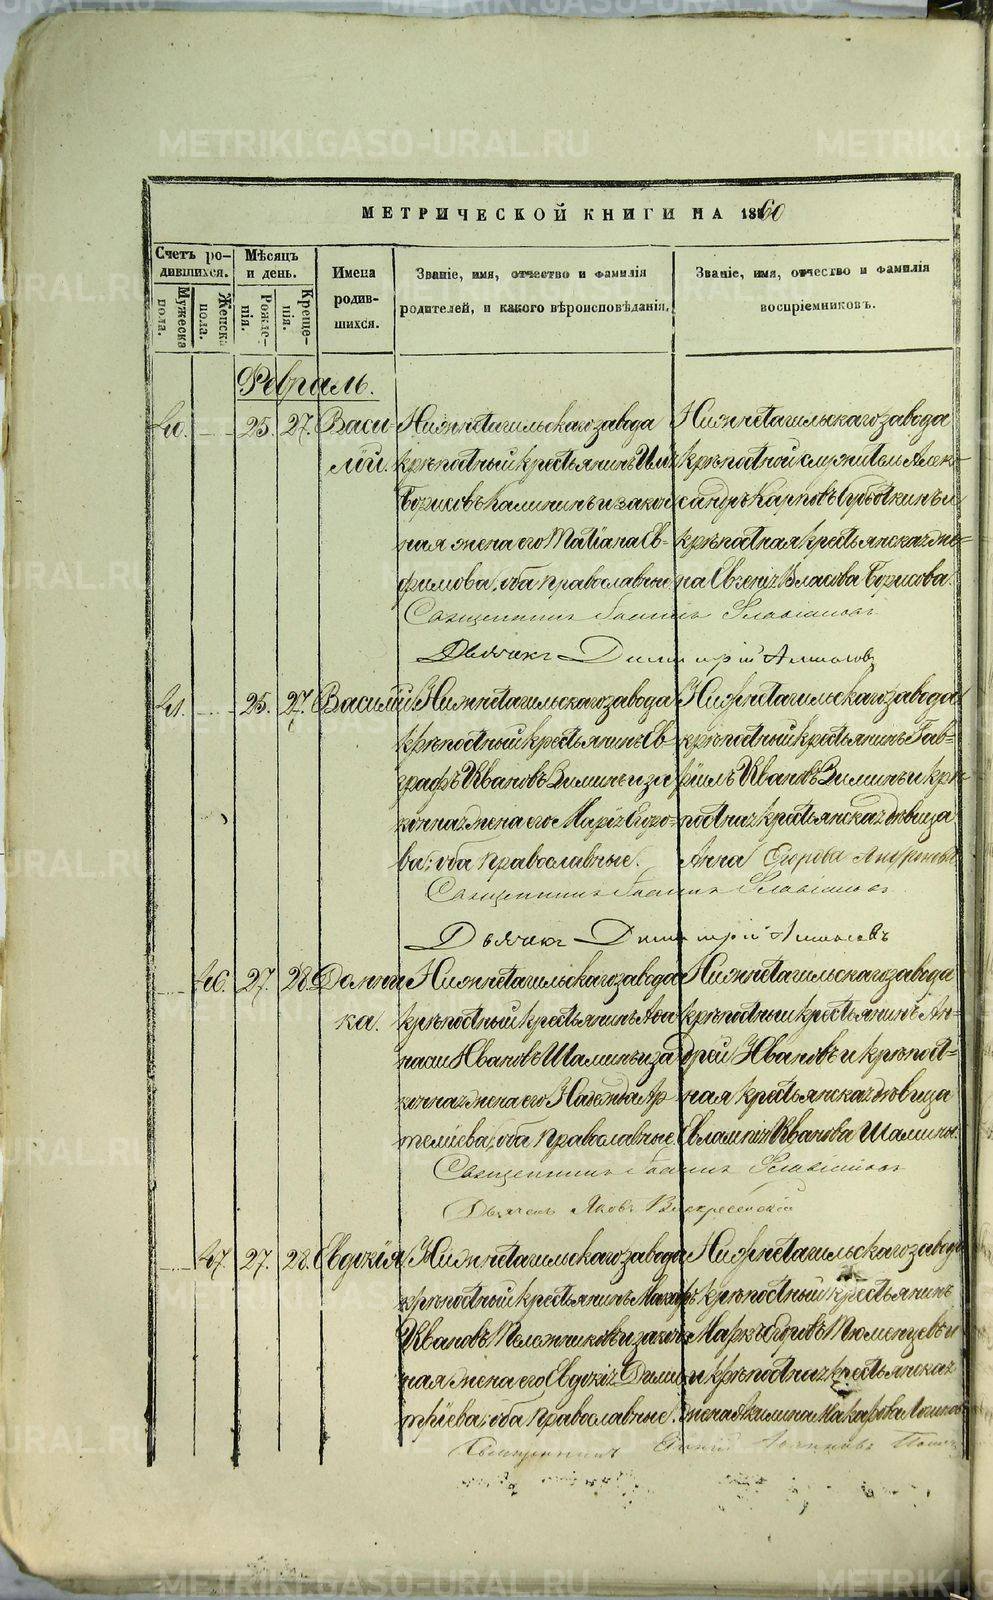 МЕТРИЧЕСКОЙ КНИГИ НА 1860
Счетъ родившихся.
Мужеска пола.
Женска пола.
Мѣсяцъ и день.
Рожденія.
Крещенія.
Имена родившихся.
Званіе, имя, отчество и фамилія
родителей, и какого вѣроисповѣданія.
Званіе, имя, отчество и фамилія
воспріемниковъ.
Февраль.
40. 25. 27. Васи
лій.
Нижнетагильскаго завода
крѣпостный крестьянинъ
Борисовъ Калининъ и закон
ная жена его Татіана Ев-
фимова, оба православные
Нижнетагильскаго завода
крѣпостной служитель Алек-
сандръ Карповъ и
крѣпостная крестьянская же-
на Евгенія Власова Борисова.
Священникъ Іоаннъ
Дьячекъ Димитрій
41. 25. 27. Василій
Нижнетагильскаго завода
крѣпостный крестьянинъ Ев-
графъ Ивановъ Зиминъ и за
конная жена его Марія Егоро-
ва; оба православные.
Нижнетагильскаго завода
крѣпостный крестьянинъ Гав-
ріилъ Ивановъ Зиминъ и крѣ-
постная крестьянская дѣвица
Анна Егорова
Священникъ Іоаннъ
Дьячекъ Димитрій
46. 27. 28. Домни
ка.
Нижнетагильскаго завода
крѣпостный крестьянинъ Афа
насій Ивановъ Шаминъ и за
конная жена его Надежда Ар
теміева, оба православные
Нижнетагильскаго завода
крѣпостный крестьянинъ Ан-
дрей Ивановъ и крѣпост-
ная крестьянская дѣвица
Евлампія Иванова Шамины.
Священникъ Іоаннъ
Дьячекъ Яковъ Воскресенскій
47. 27. 28. Евдокія
Нижнетагильскаго завода
крѣпостный крестьянинъ Макаръ
Ивановъ и закон
ная жена его Евдокія Дими
тріева; оба православные.
Нижнетагильскаго завода
крѣпостный крестьянинъ
Маркъ Егоровъ Тюменцевъ и
крѣпостная крестьянская
жена Акилина Макарова
Священникъ
METRIKI.GASO-URAL.RU